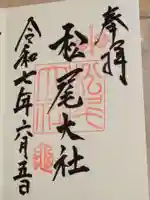 奉拝
松尾大社
令和七年六月五日